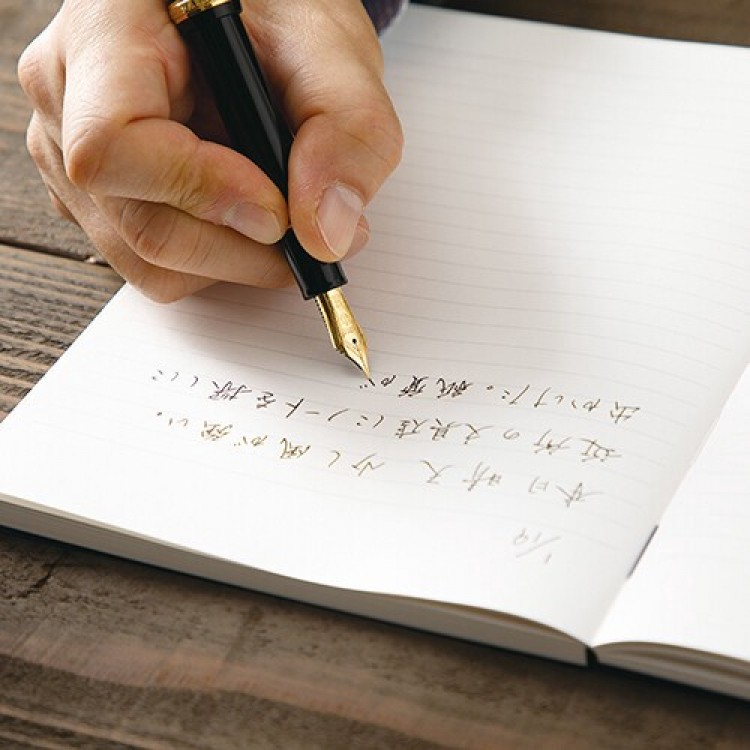 1/19
本日晴天 少し風が強い。
近所の文具店にノートを探しに
出かけた。紙質が